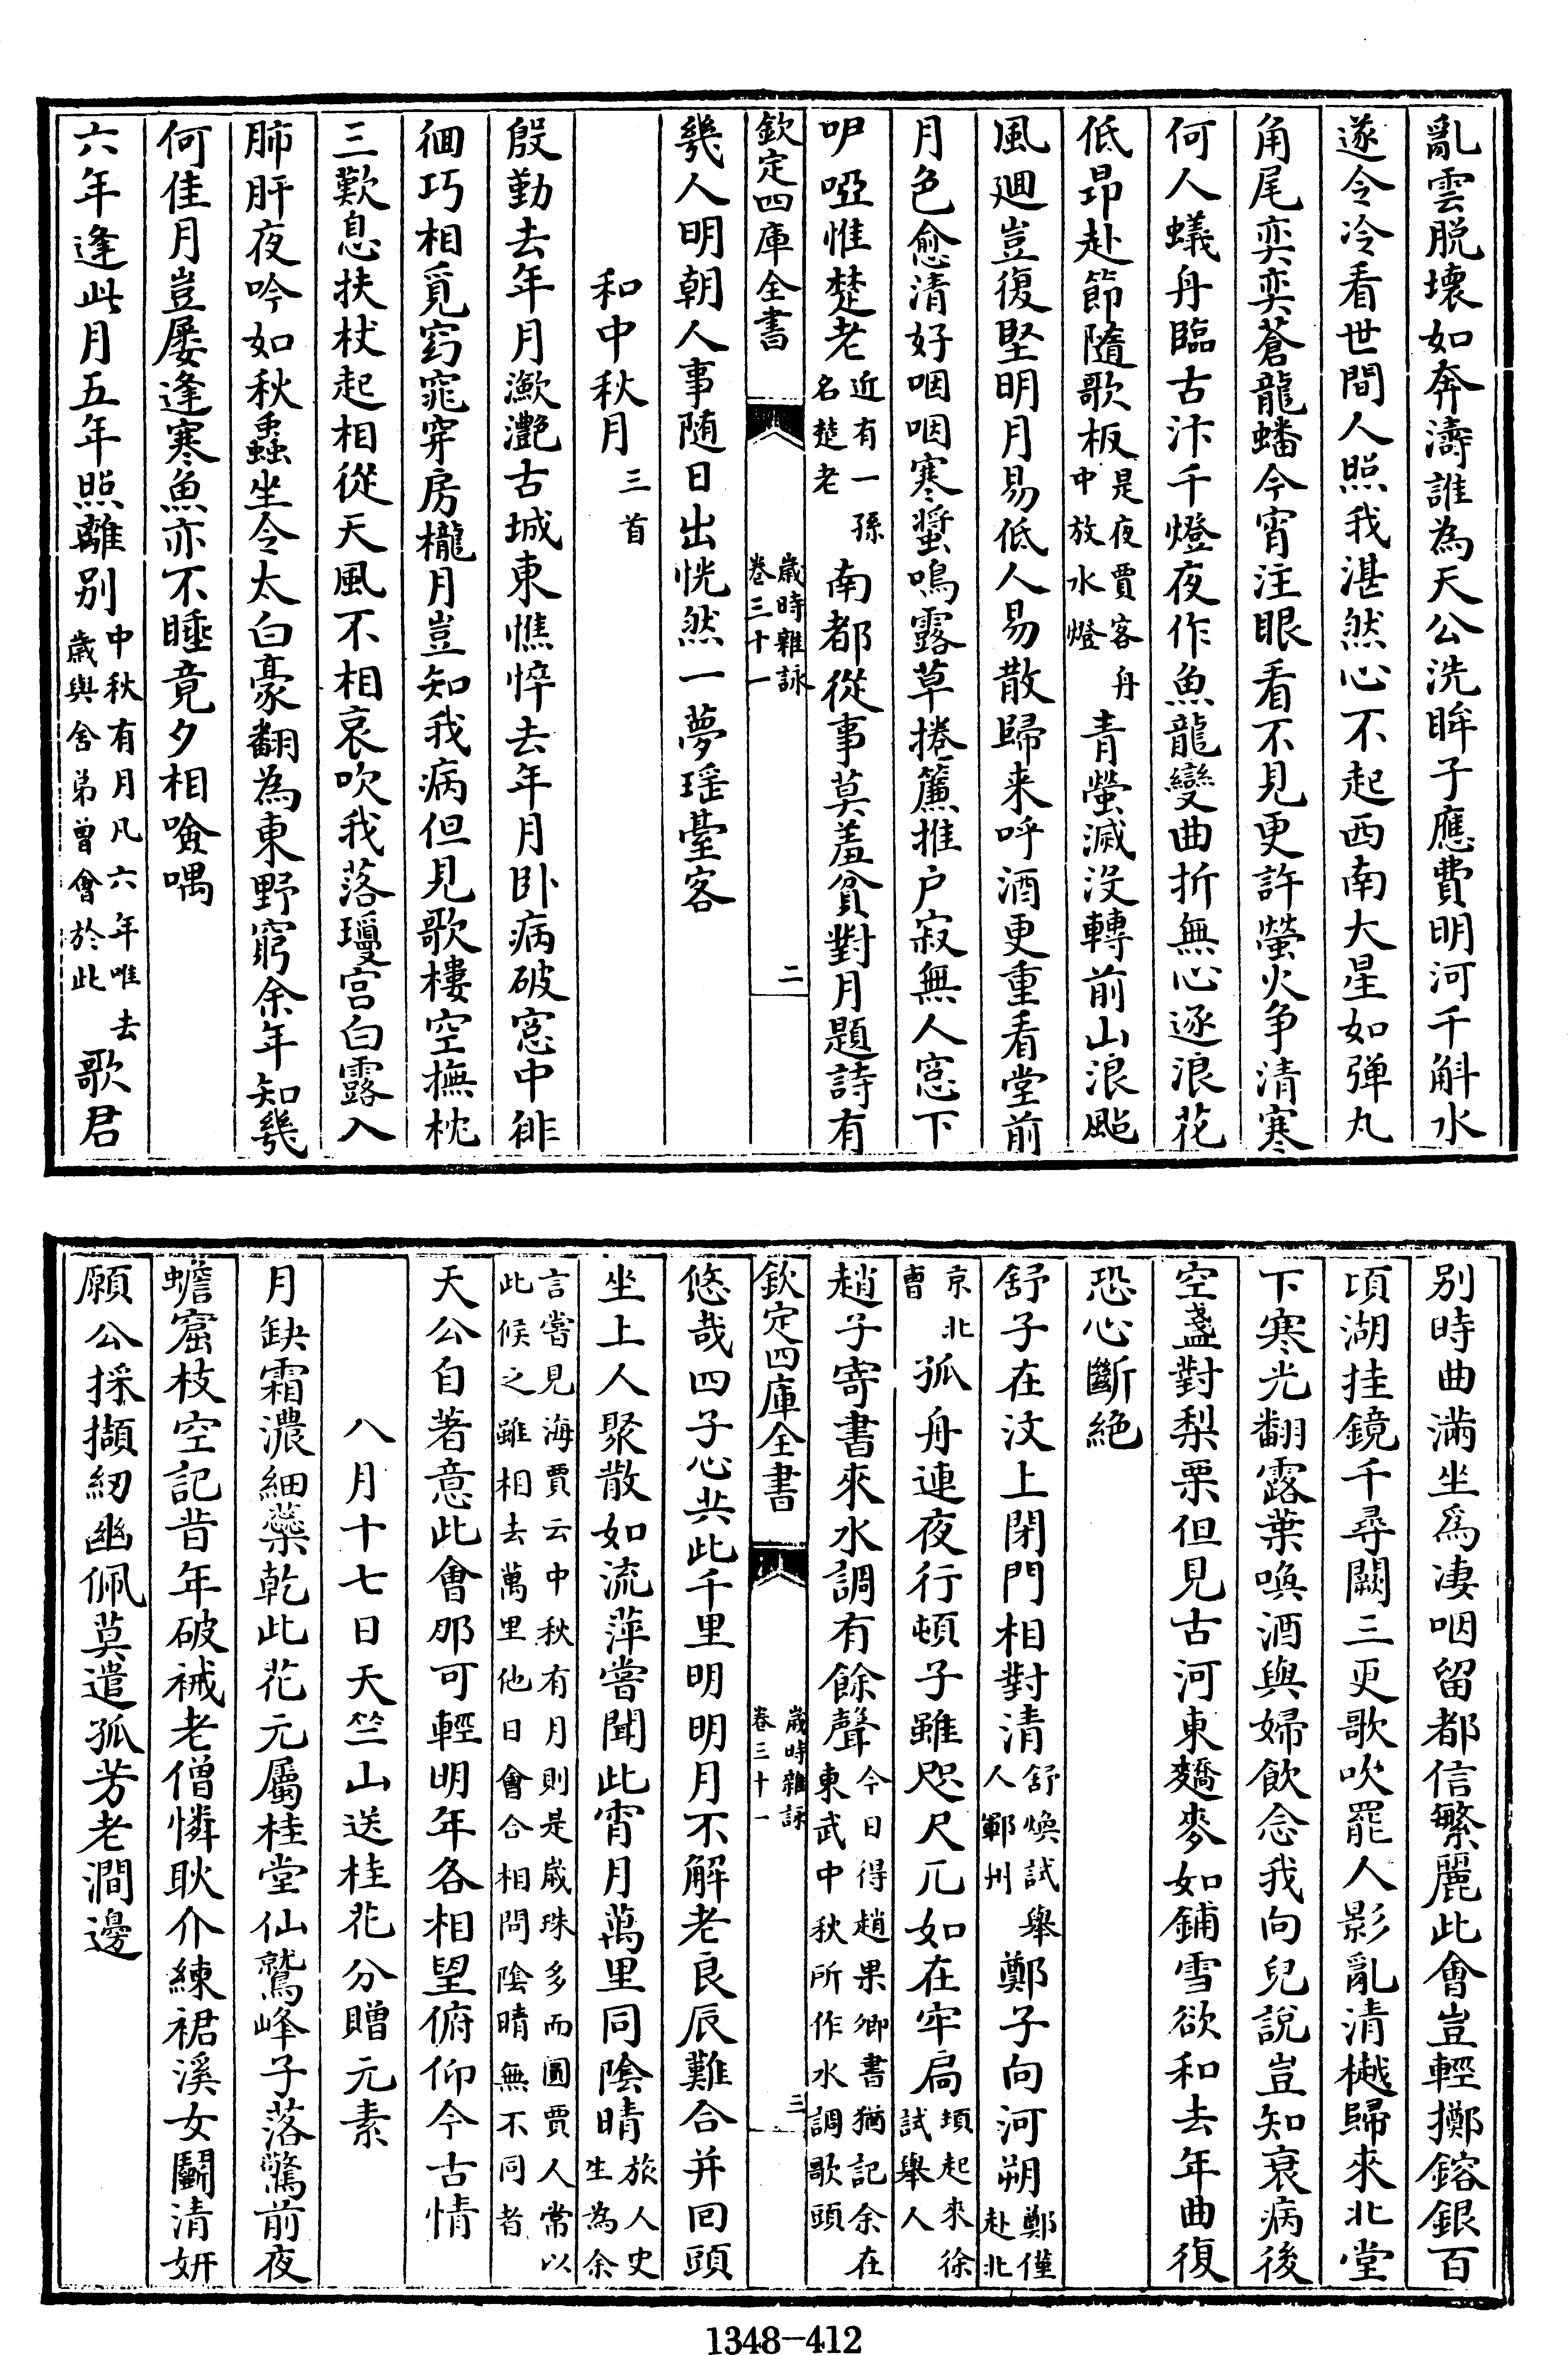 亂雲脱壞如奔濤誰為天公洗眸子應費明河千斛水
遂令冷看世間人照我湛然心不起西南大星如弹丸
角尾奕奕蒼龍蟠今宵注眼看不見更許螢火争清寒
何人蟻舟臨古汴千燈夜作魚龍變曲折無心逐浪花
低昻赴節隨歌板是夜賈客舟中放水燈青螢滅没轉前山浪颭
風𢌞豈復堅明月易低人易散歸来呼酒更重看堂前
月色愈清好咽咽寒螿鳴露草捲簾推户寂無人窓下
咿啞惟楚老近有一孫名楚老南都從事莫羞貧對月題詩有
欽定四庫全書 歲時雜詠卷三十一 二
幾人明朝人事随日出恍然一夢瑶臺客
和中秋月三首
殷勤去年月潋灔古城東憔悴去年月卧病破窓中徘
徊巧相覓窈窕穿房櫳月豈知我病但見歌樓空撫枕
三歎息扶杖起相從天風不相哀吹我落瓊宫白露入
肺肝夜吟如秋蟲坐令太白豪翻為東野窮余年知幾
何佳月豈屡逢寒魚亦不睡竟夕相噞喁
六年逢此月五年照離别中秋有月凡六年唯去歲與舍弟曾會於此歌君
别時曲滿坐爲凄咽留都信繁麗此會豈輕擲鎔銀百
頃湖挂鏡千尋闕三更歌吹罷人影亂清樾歸來北堂
下寒光翻露葉喚酒與婦飲念我向兒說豈知衰病後
空盞對梨栗但見古河東蕎麥如鋪雪欲和去年曲復
恐心斷絶
舒子在汶上閉門相對清舒煥試舉人鄆州鄭子向河朔鄭僅赴北
京北曹孤舟連夜行頓子雖咫尺兀如在牢扃頊起來徐試舉人
趙子寄書來水調有餘聲今日得趙果卿書猶記余在東武中秋所作水調歌頭
欽定四庫全書 歲時雜詠卷三十一 三
悠哉四子心共此千里明明月不解老良辰難合并回頭
坐上人聚散如流萍嘗聞此宵月萬里同陰晴旅人史生為余
言嘗見海賈云中秋有月則是歲珠多而圓賈人常以此候之雖相去萬里他日會合相問陰晴無不同者
天公自著意此會那可輕明年各相望俯仰今古情
八月十七日天竺山送桂花分贈元素
月缺霜濃細蘂乾此花元屬桂堂仙鷲峰子落驚前夜
蟾窟枝空記昔年破裓老僧憐耿介練裙溪女鬭清妍
願公採擷紉幽佩莫遣孤芳老澗邊
1348-412